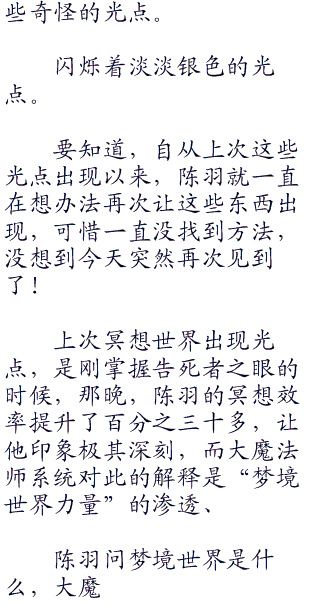 些奇怪的光点。
闪烁着淡淡银色的光
点。
要知道，自从上次这些
光点出现以来，陈羽就一直
在想办法再次让这些东西出
现，可惜一直没找到方法，
没想到今天突然再次见到
了！
上次冥想世界出现光
点，是刚掌握告死者之眼的
时候，那晚，陈羽的冥想效
率提升了百分之三十多，让
他印象极其深刻，而大魔法
师系统对此的解释是“梦境
世界力量”的渗透、
陈羽问梦境世界是什
么，大魔